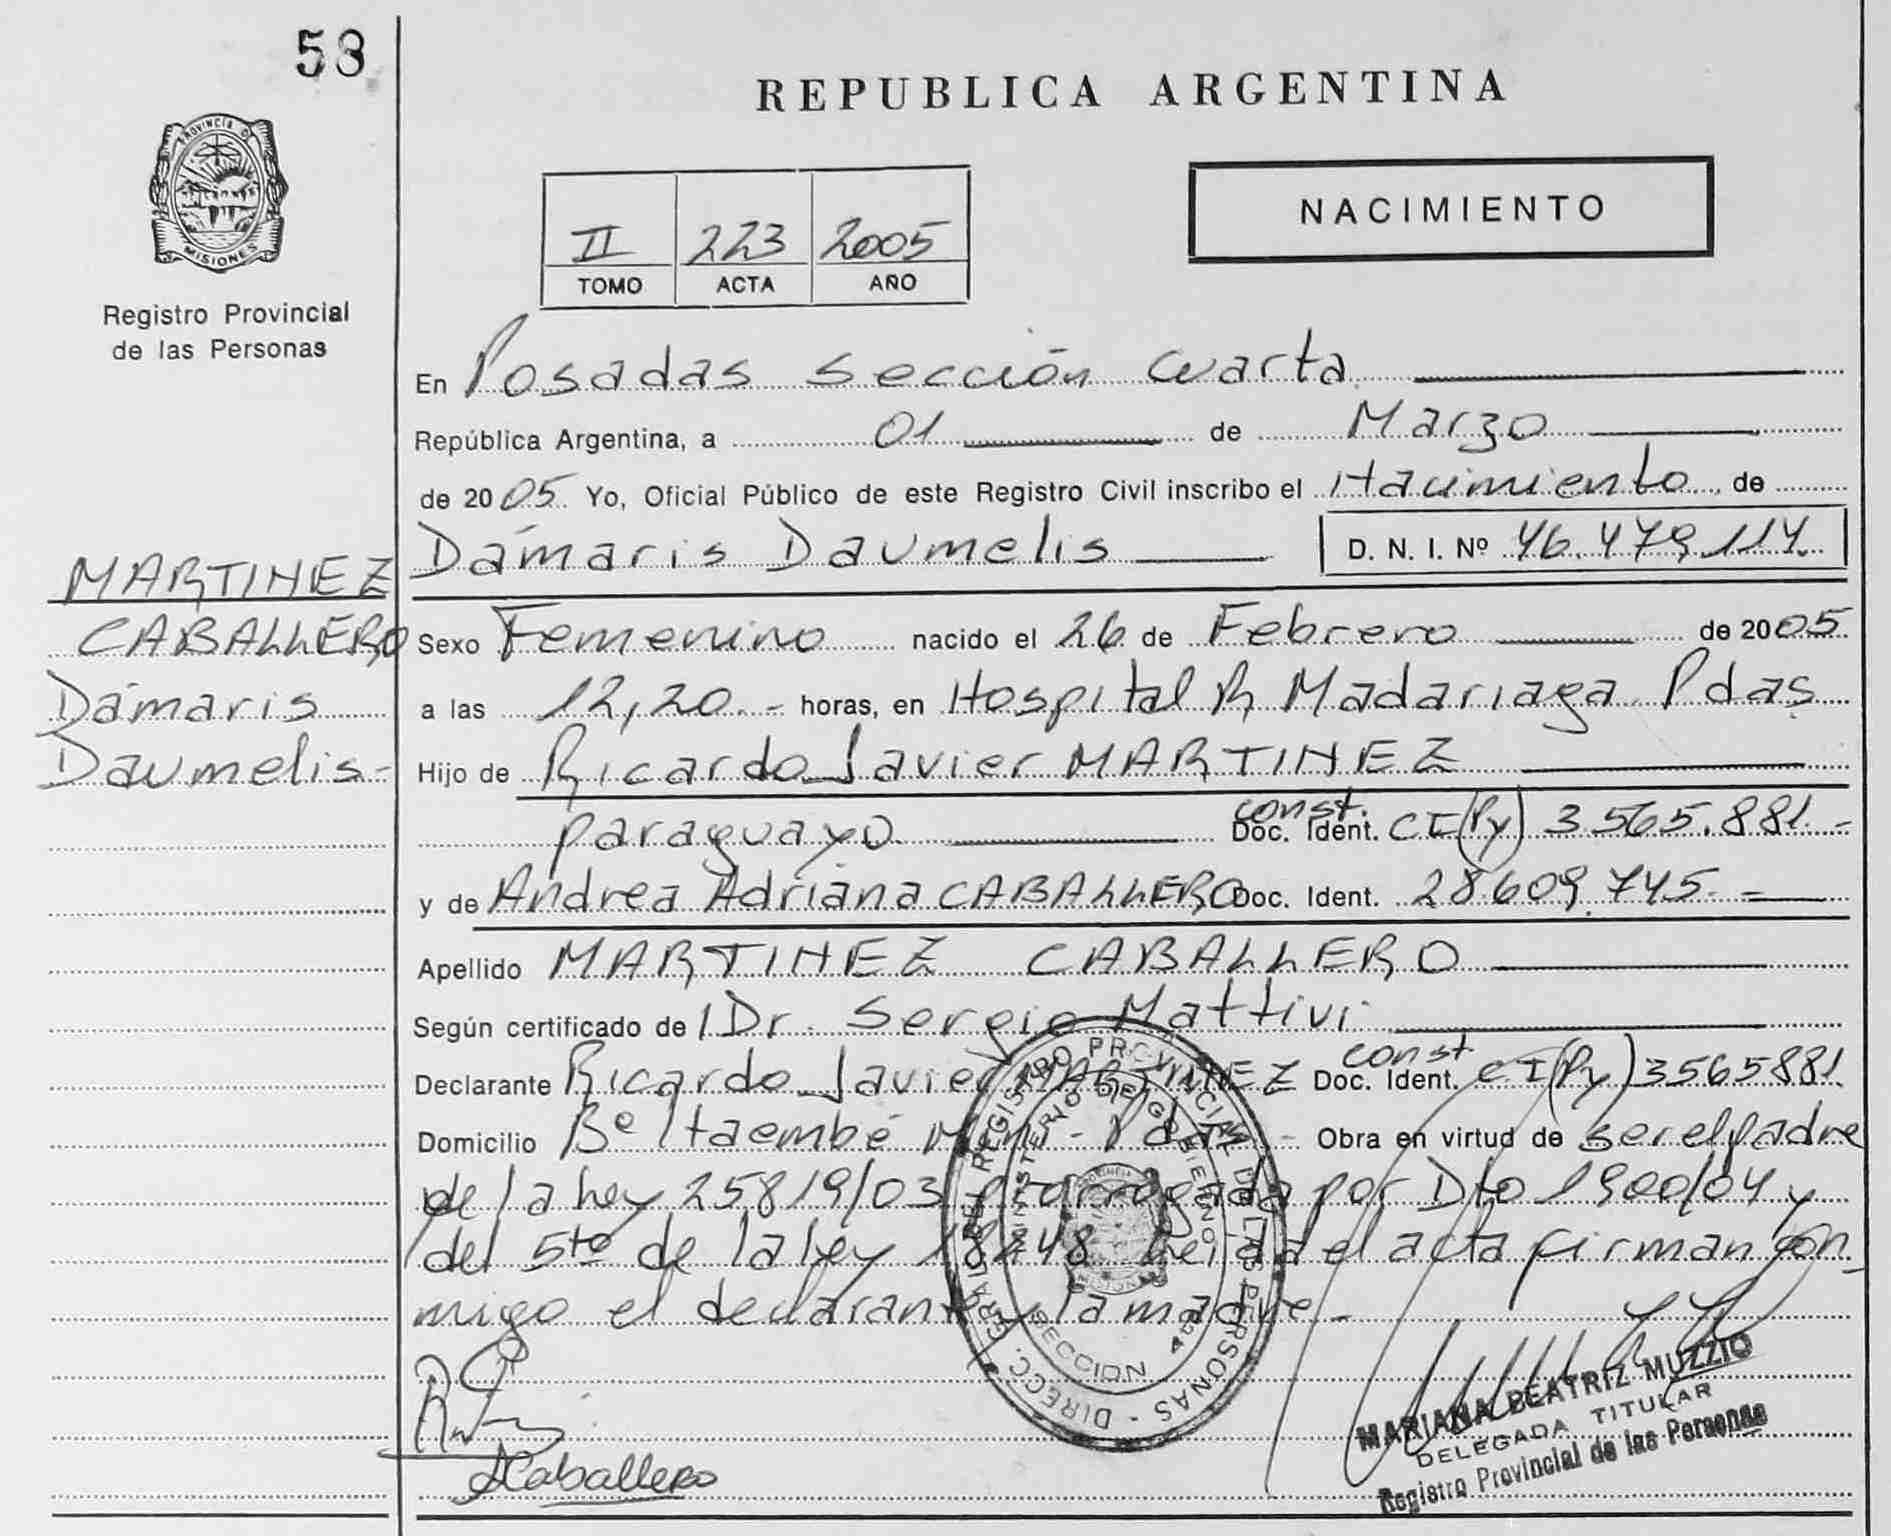 58
REPUBLICA ARGENTINA
PROVINCIA D
MISIONES
Registro Provincial
de las Personas
NACIMIENTO
II 223 2005
TOMO ACTA AÑO
En Posadas sección cuarta
República Argentina, a 01 de Marzo
de 2005. Yo, Oficial Público de este Registro Civil inscribo el Nacimiento de
Dámaris Daumelis D. N. I. Nº 46.479.114.
MARTINEZ
CABALLERO
Dámaris
Daumelis-
Sexo Femenino nacido el 26 de Febrero de 2005
a las 12,20.- horas, en Hospital R Madariaga Pdas
Hijo de Ricardo Javier MARTINEZ
paraguayo const. Doc. Ident. CI(Py) 3.565.881.-
y de Andrea Adriana CABALLERO Doc. Ident. 28.609.745.-
Apellido MARTINEZ CABALLERO
Según certificado del Dr. Sergio Mattivi
Declarante Ricardo Javier MARTINEZ const Doc. Ident. CI(Py) 3565881.
Domicilio Bº Itaembé Miní - Pdas - Obra en virtud de ser el padre
de la Ley 25819/03 prorrogada por Dto 1900/04 y
del 5to de la ley 18248 leida el acta firman con
migo el declarante y la madre.-
DIRECC. GRAL. DEL REGISTRO PROVINCIAL DE LAS PERSONAS -
MINISTERIO DE GOBIERNO
SECCION 4ta
ACaballero
MARIANA BEATRIZ MUZZIO
DELEGADA TITULAR
Registro Provincial de las Personas